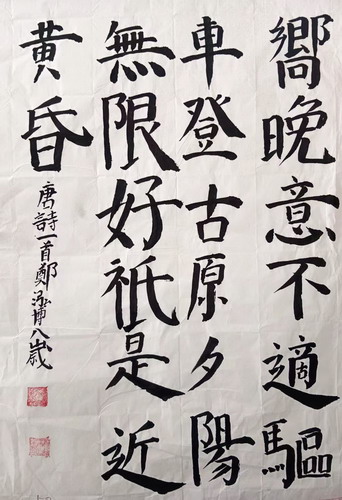 嚮晚意不適驅
車登古原夕陽
無限好祇是近
黃昏
唐詩一首鄭泓博八歲